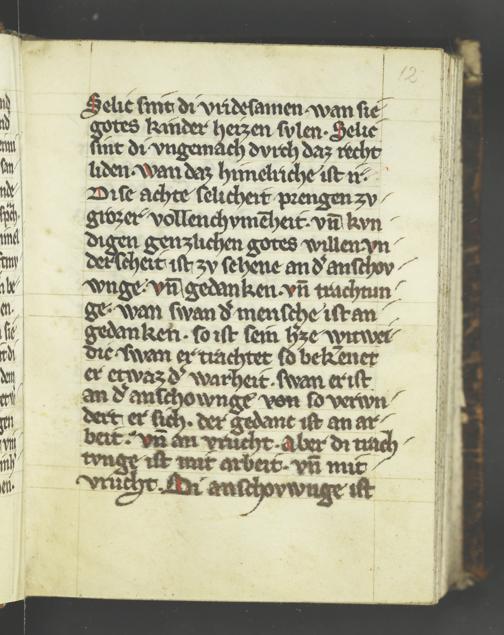 12
Selic sint di vridesamen· wan sie
gotes kinder heizen sylen· Selic
sint di vngemach dvrch daz recht
liden· wan daz himelriche ist ir·
Dise achte selicheit prengen zv
grozer vollenchvmēheit· vn̄ kvn
digen genzlichen gotes willen vn
derscheit ist zv sehene an d̕ anschov
wnge· vn̄ gedanken· vn̄ trachtun
ge· wan swan d̕ mensche ist an
gedanken· so ist sein h̕ze witwei
dic· swan er trachtet so bekenet
er etwaz d̕ warheit· swan er ist
an d̕ anschownge von so verwn
dert er sich· der gedanc ist an ar
beit· vn̄ an vrucht· Aber di trach
tvnge ist mit arbeit· vn̄ mit
vrucht· Di anschovwnge ist